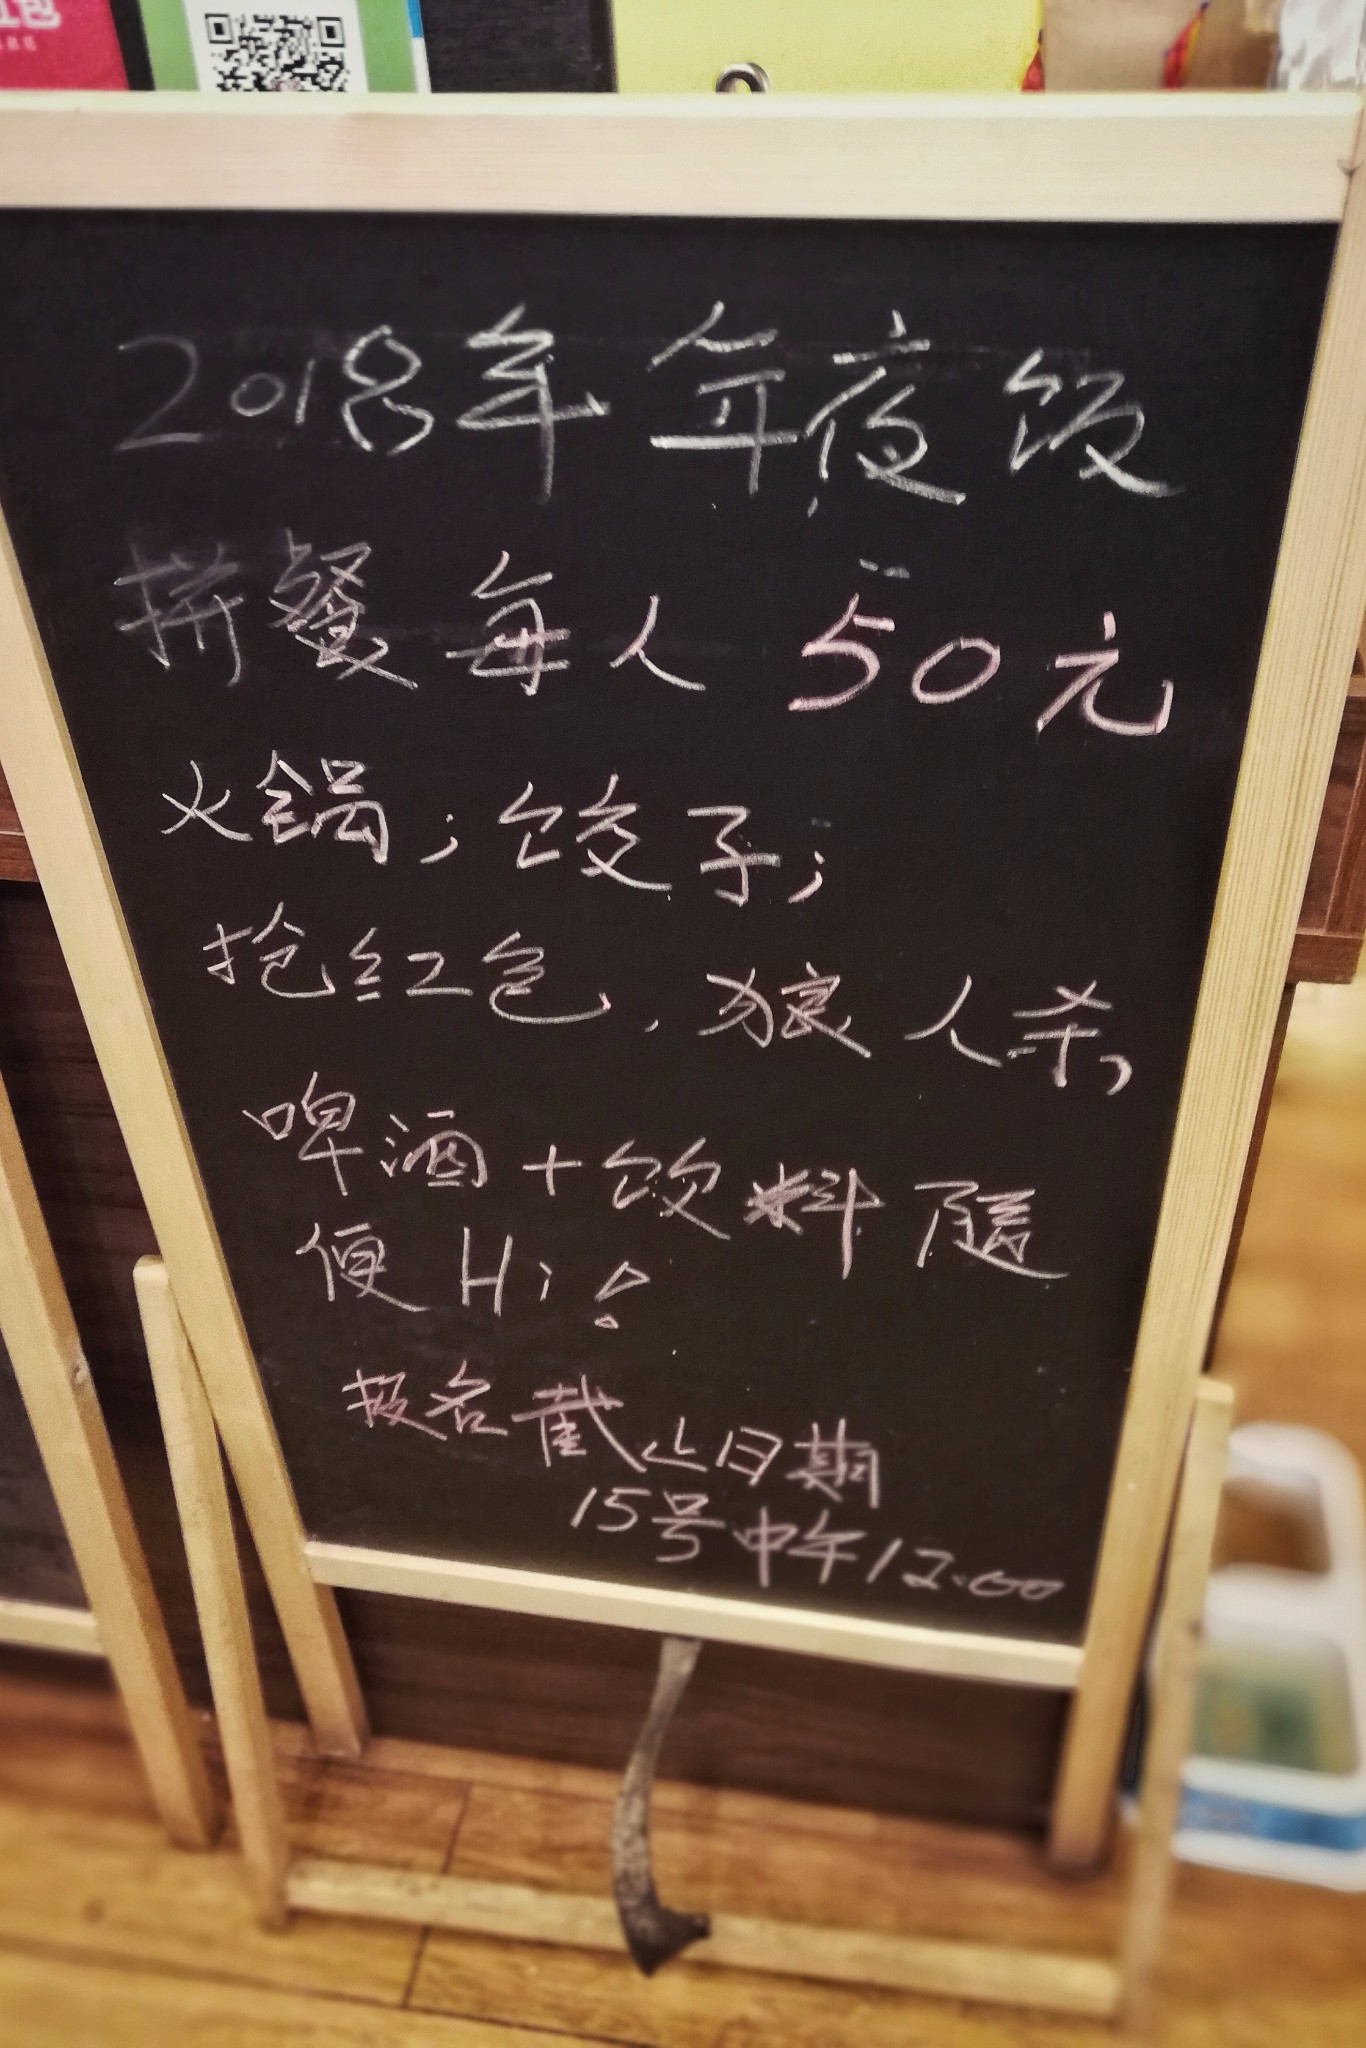 包
2018年 年夜饭
拼餐 每人 50元
火锅；饺子；
抢红包，狼人杀，
啤酒+饮料 随
便 Hi！
报名截止日期
15号中午12.00